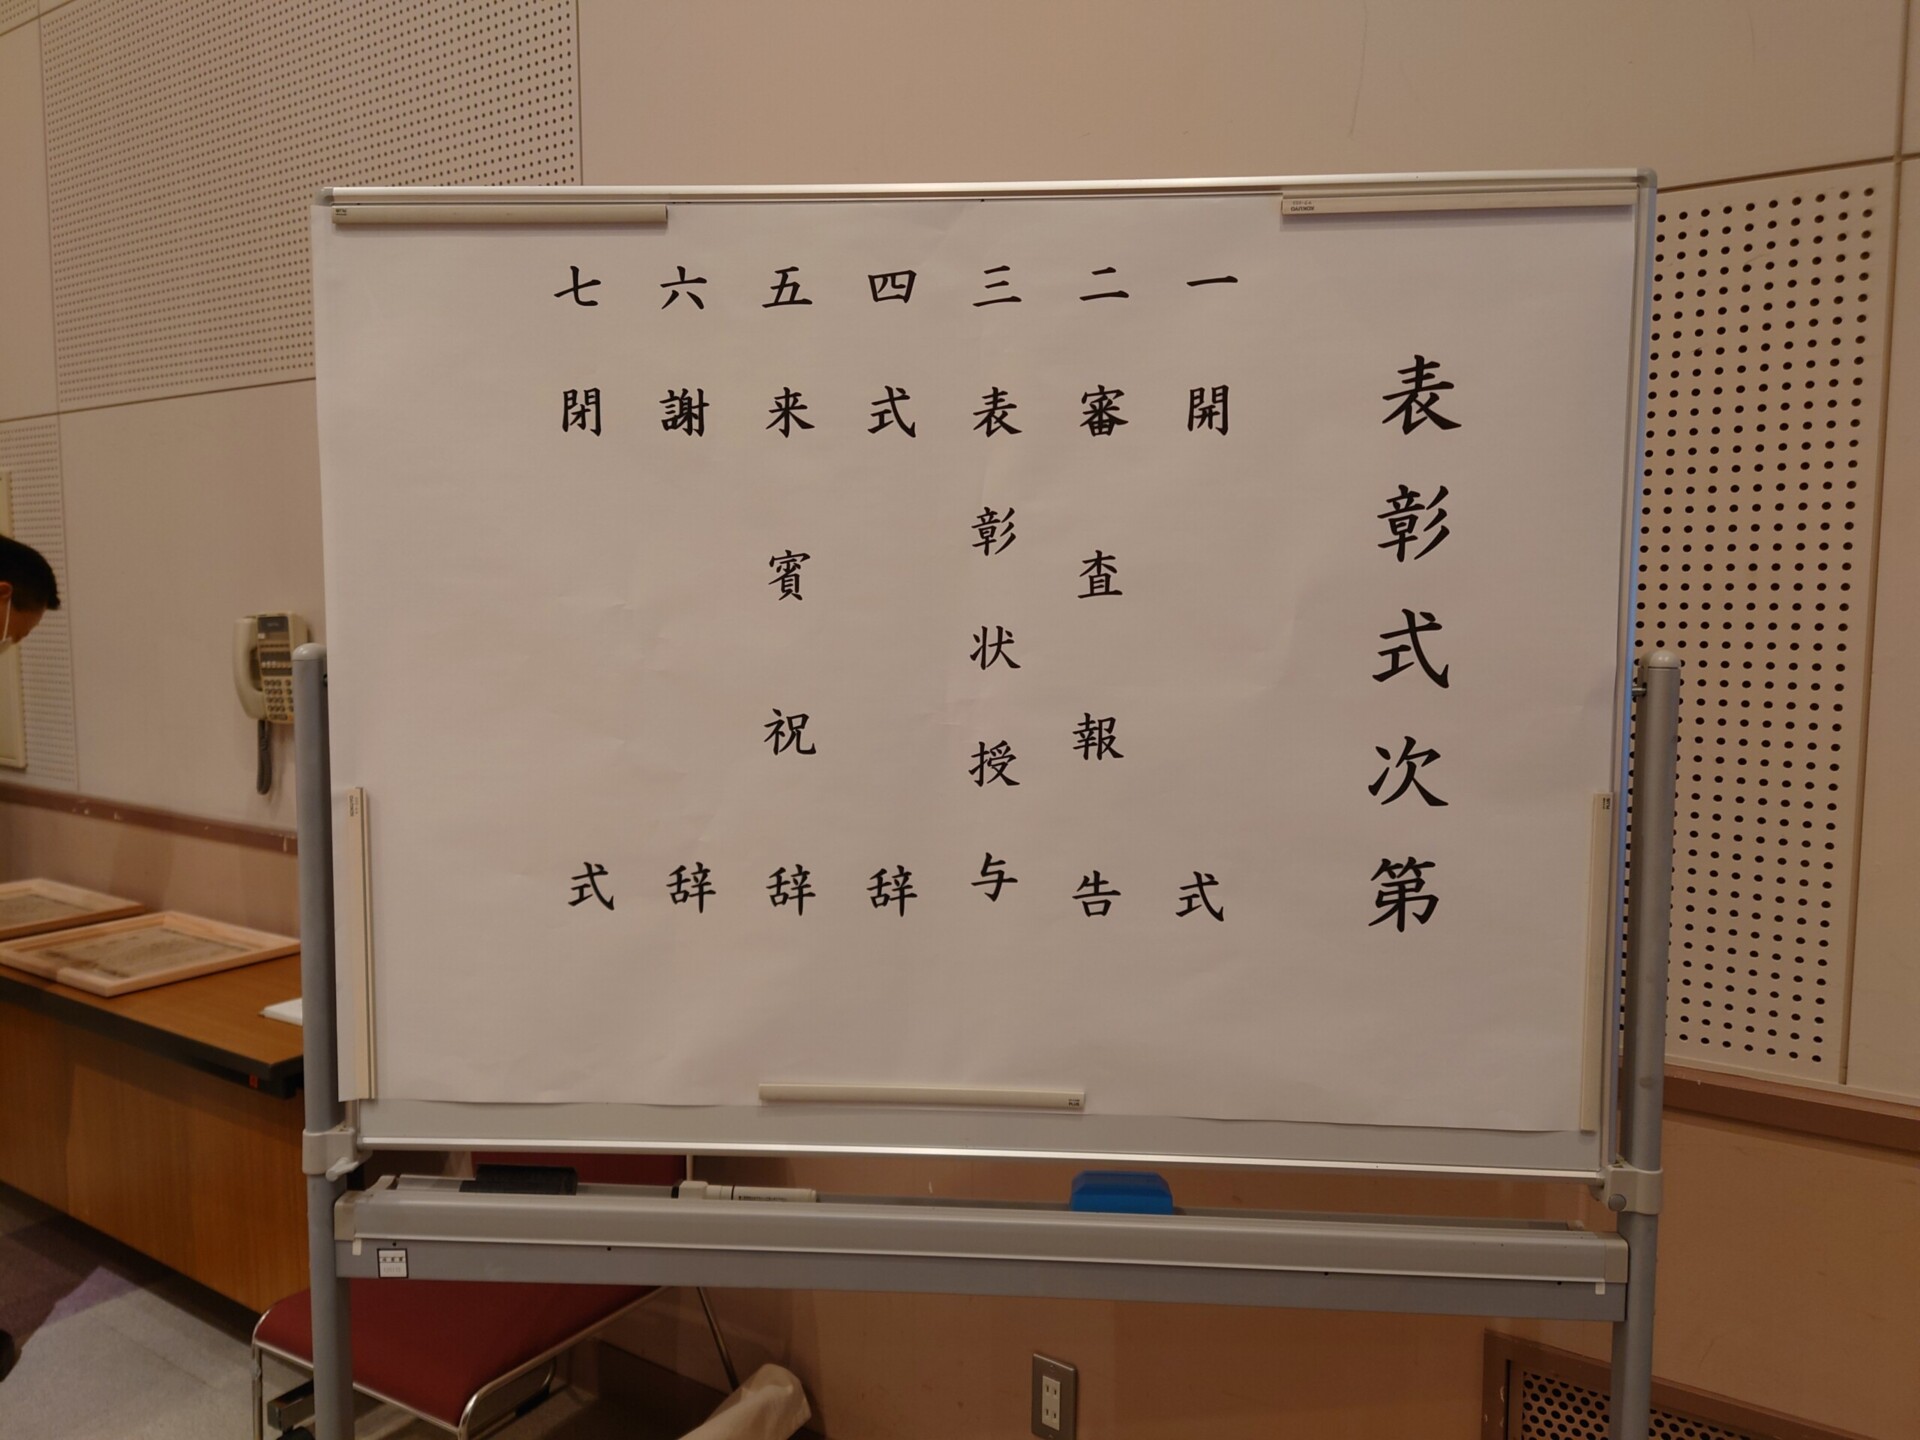 表彰式次第
一 開式
二 審査報告
三 表彰状授与
四 式辞
五 来賓祝辞
六 謝辞
七 閉式